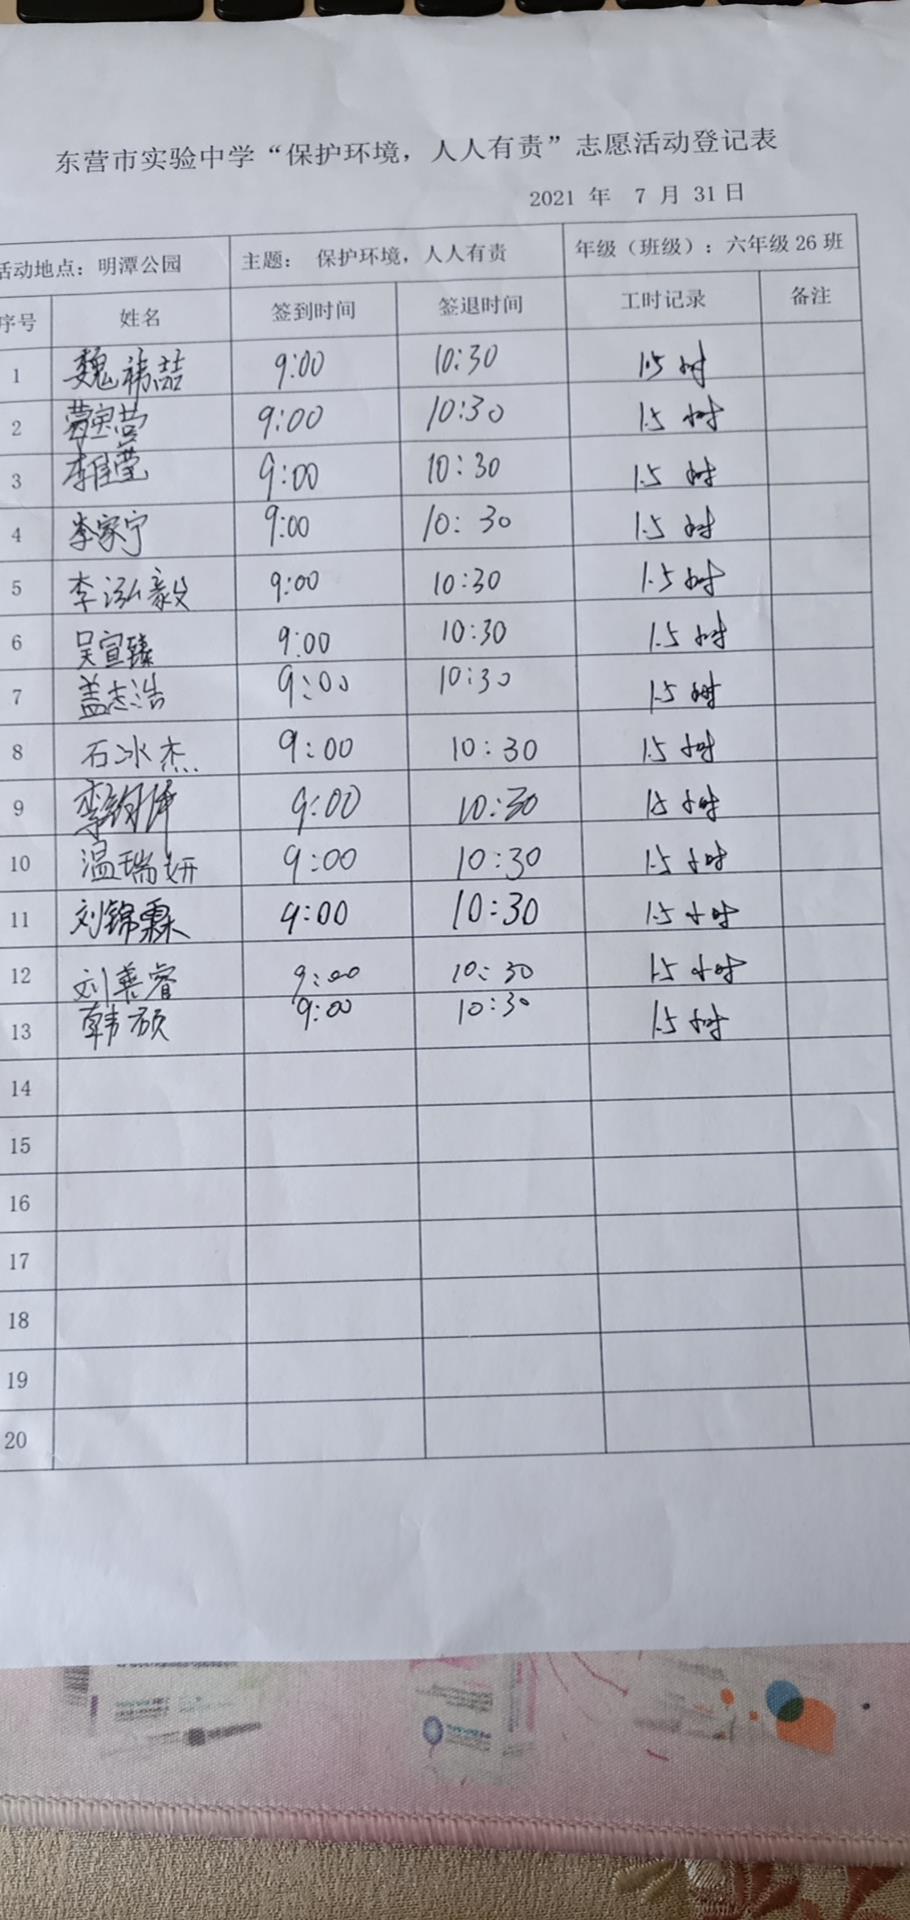 东营市实验中学“保护环境，人人有责”志愿活动登记表
2021 年 7 月 31日
活动地点：明潭公园 主题： 保护环境，人人有责 年级（班级）：六年级 26 班
序号 姓名 签到时间 签退时间 工时记录 备注
1 魏祎喆 9:00 10:30 1.5 小时
2 9:00 10:30 1.5 小时
3 李佳莹 9:00 10:30 1.5 小时
4 李家宁 9:00 10:30 1.5 小时
5 李泓毅 9:00 10:30 1.5 小时
6 吴宣臻 9:00 10:30 1.5 小时
7 盖志浩 9:00 10:30 1.5 小时
8 石冰杰 9:00 10:30 1.5 小时
9 9:00 10:30 1.5 小时
10 温瑞妍 9:00 10:30 1.5 小时
11 刘锦霖 9:00 10:30 1.5 小时
12 刘善睿 9:00 10:30 1.5 小时
13 韩硕 9:00 10:30 1.5 小时
14
15
16
17
18
19
20